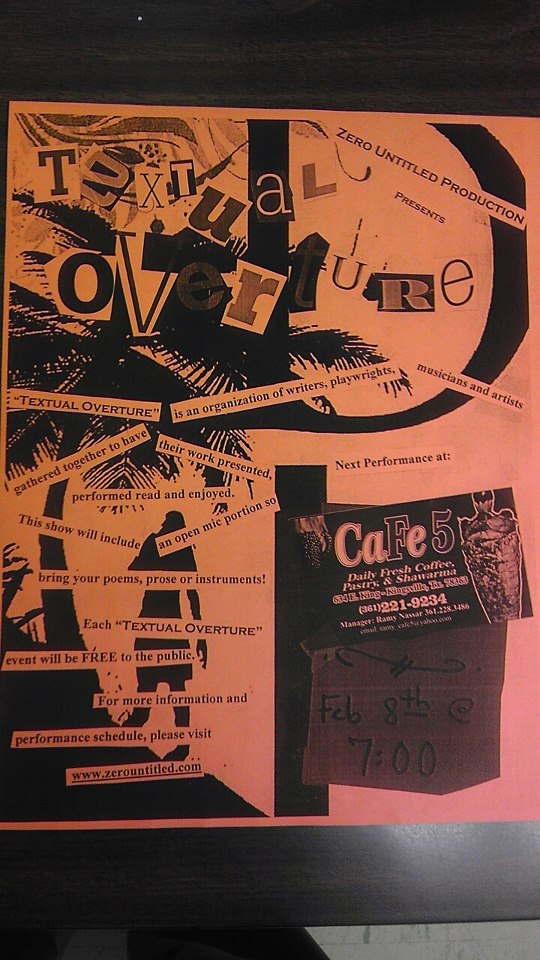 Zero Untitled Production
Presents
Textual
Overture
"TEXTUAL OVERTURE"
is an organization of writers, playwrights,
musicians and artists
gathered together to have
their work presented,
performed read and enjoyed.
This show will include
an open mic portion so
bring your poems, prose or instruments!
Each "TEXTUAL OVERTURE"
event will be FREE to the public.
For more information and
performance schedule, please visit
www.zerountitled.com
Next Performance at:
CaFe 5
Daily Fresh Coffee,
Pastry, & Shawarma
634 E. King - Kingsville, Tx. 78363
(361)221-9234
Manager: Ramy Nassar 361.228.3486
email: ramy_cafe5@yahoo.com
Feb 8th @
7:00